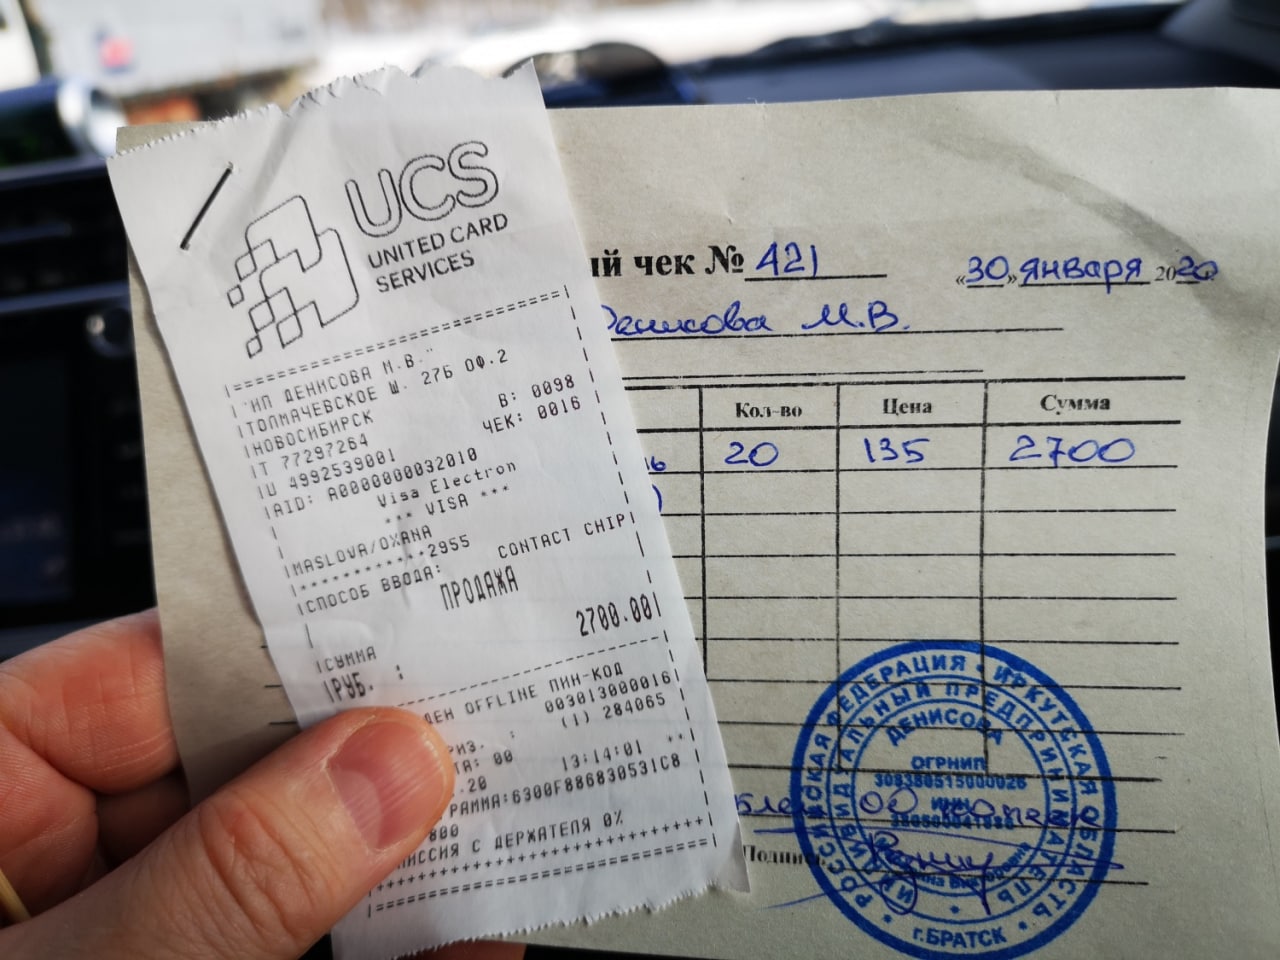 UCS
UNITED CARD
SERVICES
"ИП ДЕНИСОВА М.В."
ТОЛМАЧЕВСКОЕ Ш. 27Б ОФ.2
НОВОСИБИРСК В: 0098
T 77297264 ЧЕК: 0016
U 4992539001
AID: A0000000032010
Visa Electron
*** VISA ***
MASLOVA/OXANA
************2955
СПОСОБ ВВОДА: CONTACT CHIP
ПРОДАЖА
СУММА
РУБ. : 2700.00
ДЕН OFFLINE ПИН-КОД
РИЗ. : 003013000016
ТА: 00 (1) 284065
.20 13:14:01 **
РАММА:6300F886830531C8
800
МИССИЯ С ДЕРЖАТЕЛЯ 0%
ий чек № 421
«30» января 2020
Денисова М.В.
Кол-во Цена Сумма
20 135 2700
ь
)
00 копеек
Подпись
РОССИЙСКАЯ ФЕДЕРАЦИЯ • ИРКУТСКАЯ ОБЛАСТЬ
ИНДИВИДУАЛЬНЫЙ ПРЕДПРИНИМАТЕЛЬ
ДЕНИСОВА
ОГРНИП
308380515000026
ИНН
г.БРАТСК